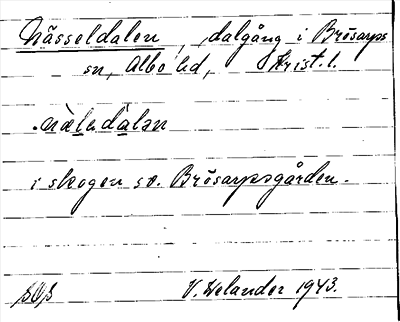 Nässeldalen, dalgång i Brösarps
sn, Albo hd, Krist. l.
nàlədàlən
i skogen sv. Brösarpsgården.
V. Welander 1943.